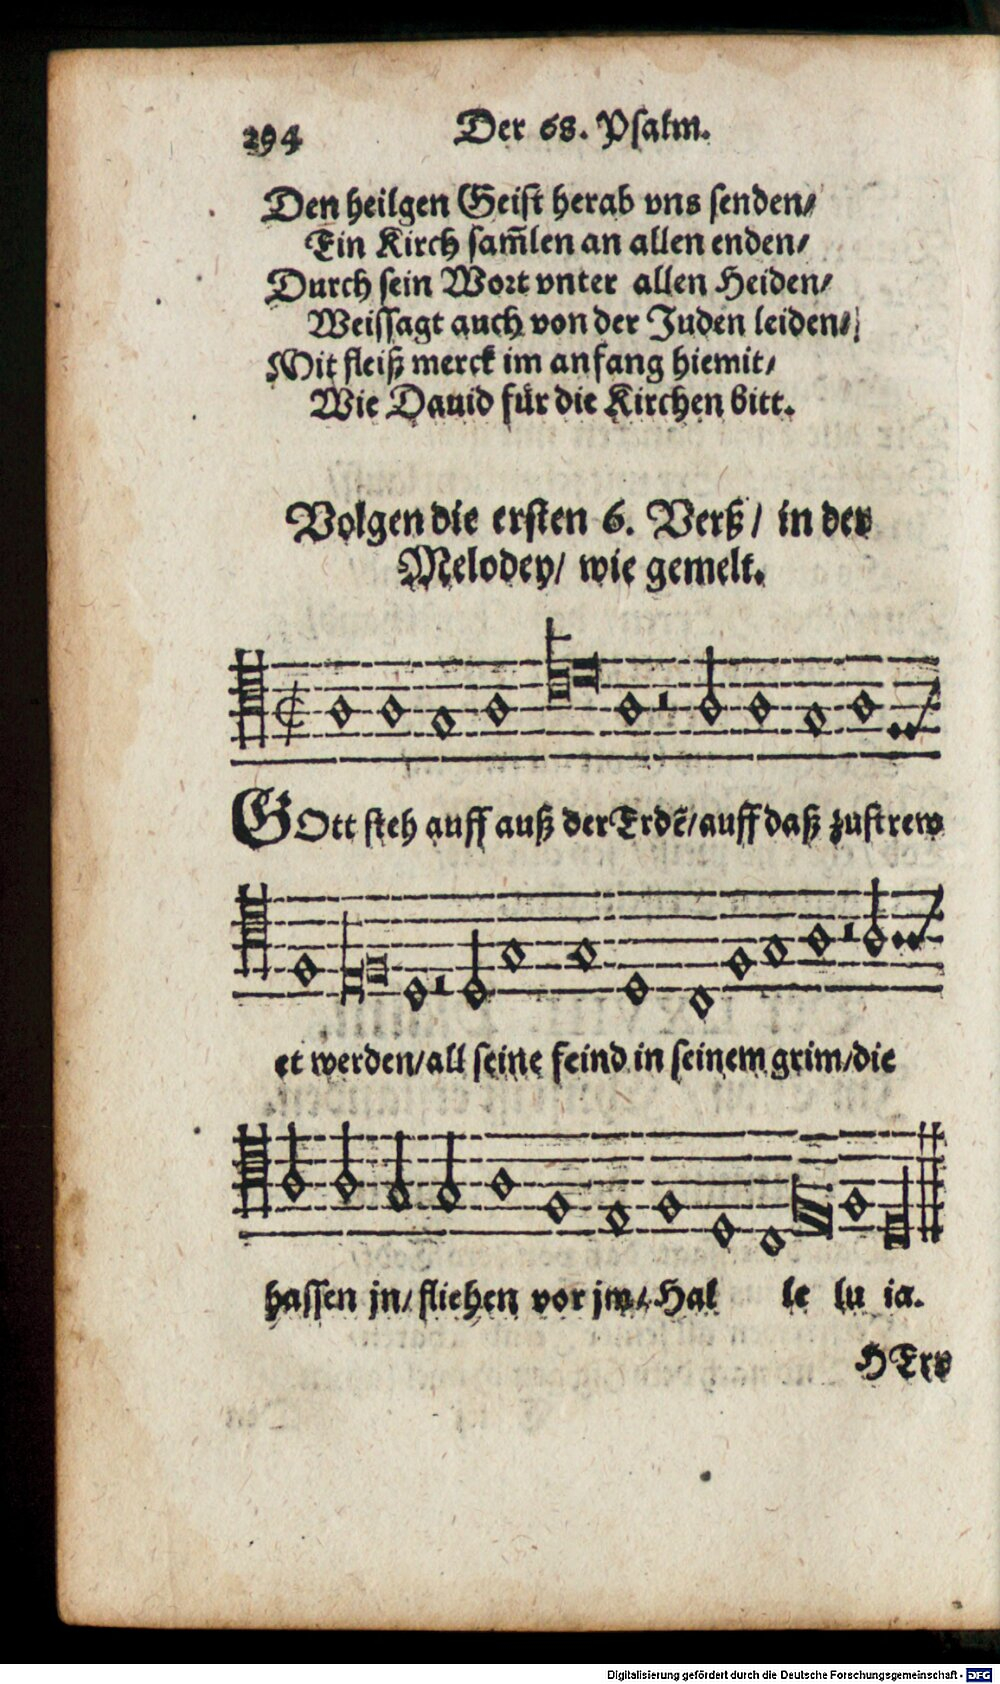 294
Der 68. Psalm.
Den heilgen Geist herab vns senden/
Ein Kirch sam̃len an allen enden/
Durch sein Wort vnter allen Heiden/
Weissagt auch von der Juden leiden/
Mit fleiß merck im anfang hiemit/
Wie Dauid für die Kirchen bitt.
Volgen die ersten 6. Verß/ in der
Melodey/ wie gemelt.
GOtt steh auff auß der Erdẽ/auff daß zustrew
et werden/all seine feind in seinem grim/die
hassen jn/fliehen vor jm/Hal le lu ia.
HErr
Digitalisierung gefördert durch die Deutsche Forschungsgemeinschaft - DFG